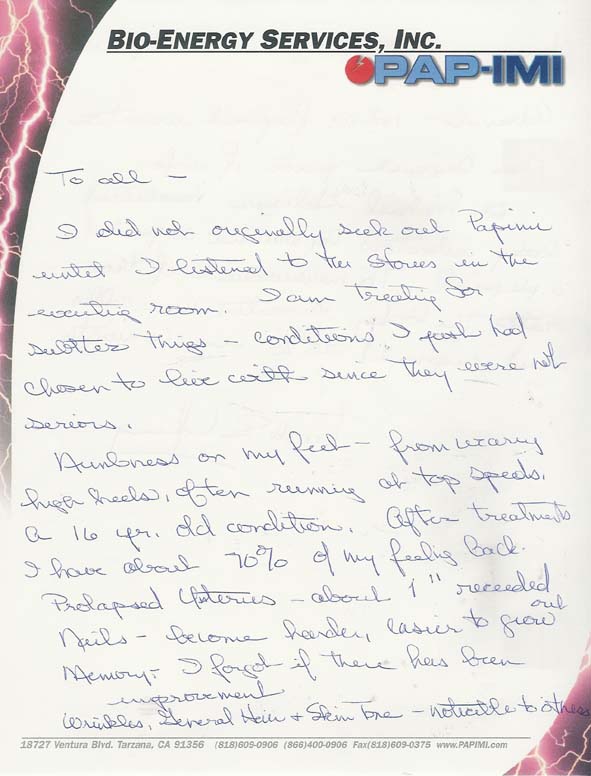 BIO-ENERGY SERVICES, INC.
PAP-IMI
To all -
I did not originally seek out Papimi
until I listened to the stories in the
waiting room. I am treating for
subtler things - conditions I just had
chosen to live with since they were not
serious.
Numbness on my feet - from wearing
high heels, often running at top speeds.
a 16 yr. old condition. After treatments
I have about 70% of my feeling back.
Prolapsed Uterus - about 1" receeded
Nails - become harder, easier to grow out
Memory - I forgot if there has been
improvement
Wrinkles, General Hair + Skin Tone - noticable to others
18727 Ventura Blvd. Tarzana, CA 91356 (818)609-0906 (866)400-0906 Fax(818)609-0375 www.PAPIMI.com